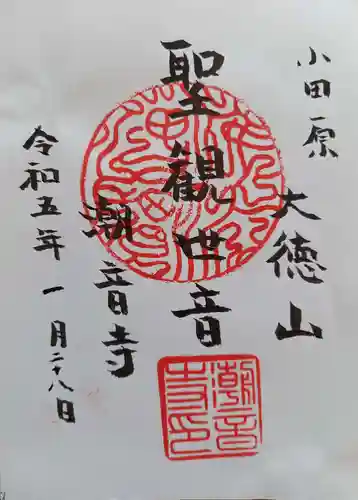 小田原
大徳山
聖観世音
潮音寺
令和五年 一月二十八日
潮音寺印